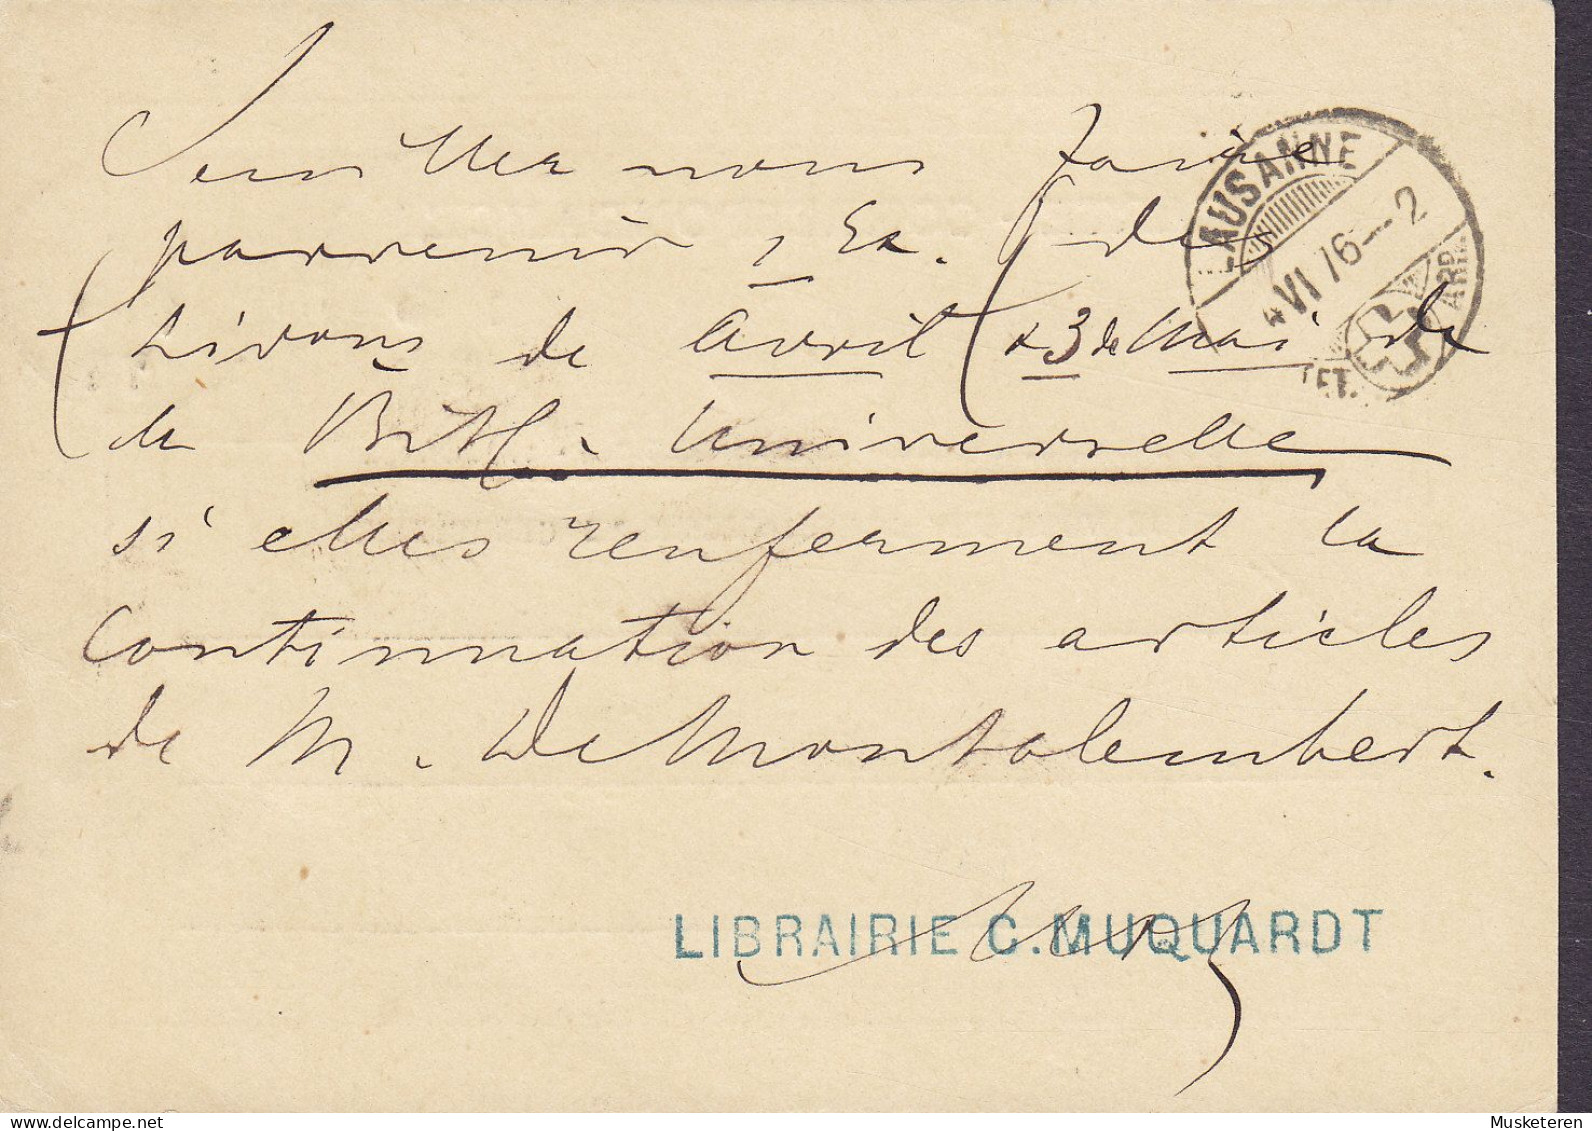 Veuillez nous faire
parvenir 1 Ex. des
Livrons de Avril & 3 de Mai de
la Bibl. Universelle
si elles renferment la
continuation des articles
de M. De Montalembert.
LAUSANNE
4 VI 76 - 2
LIBRAIRIE C. MUQUARDT
www.delcampe.net
Musketeren